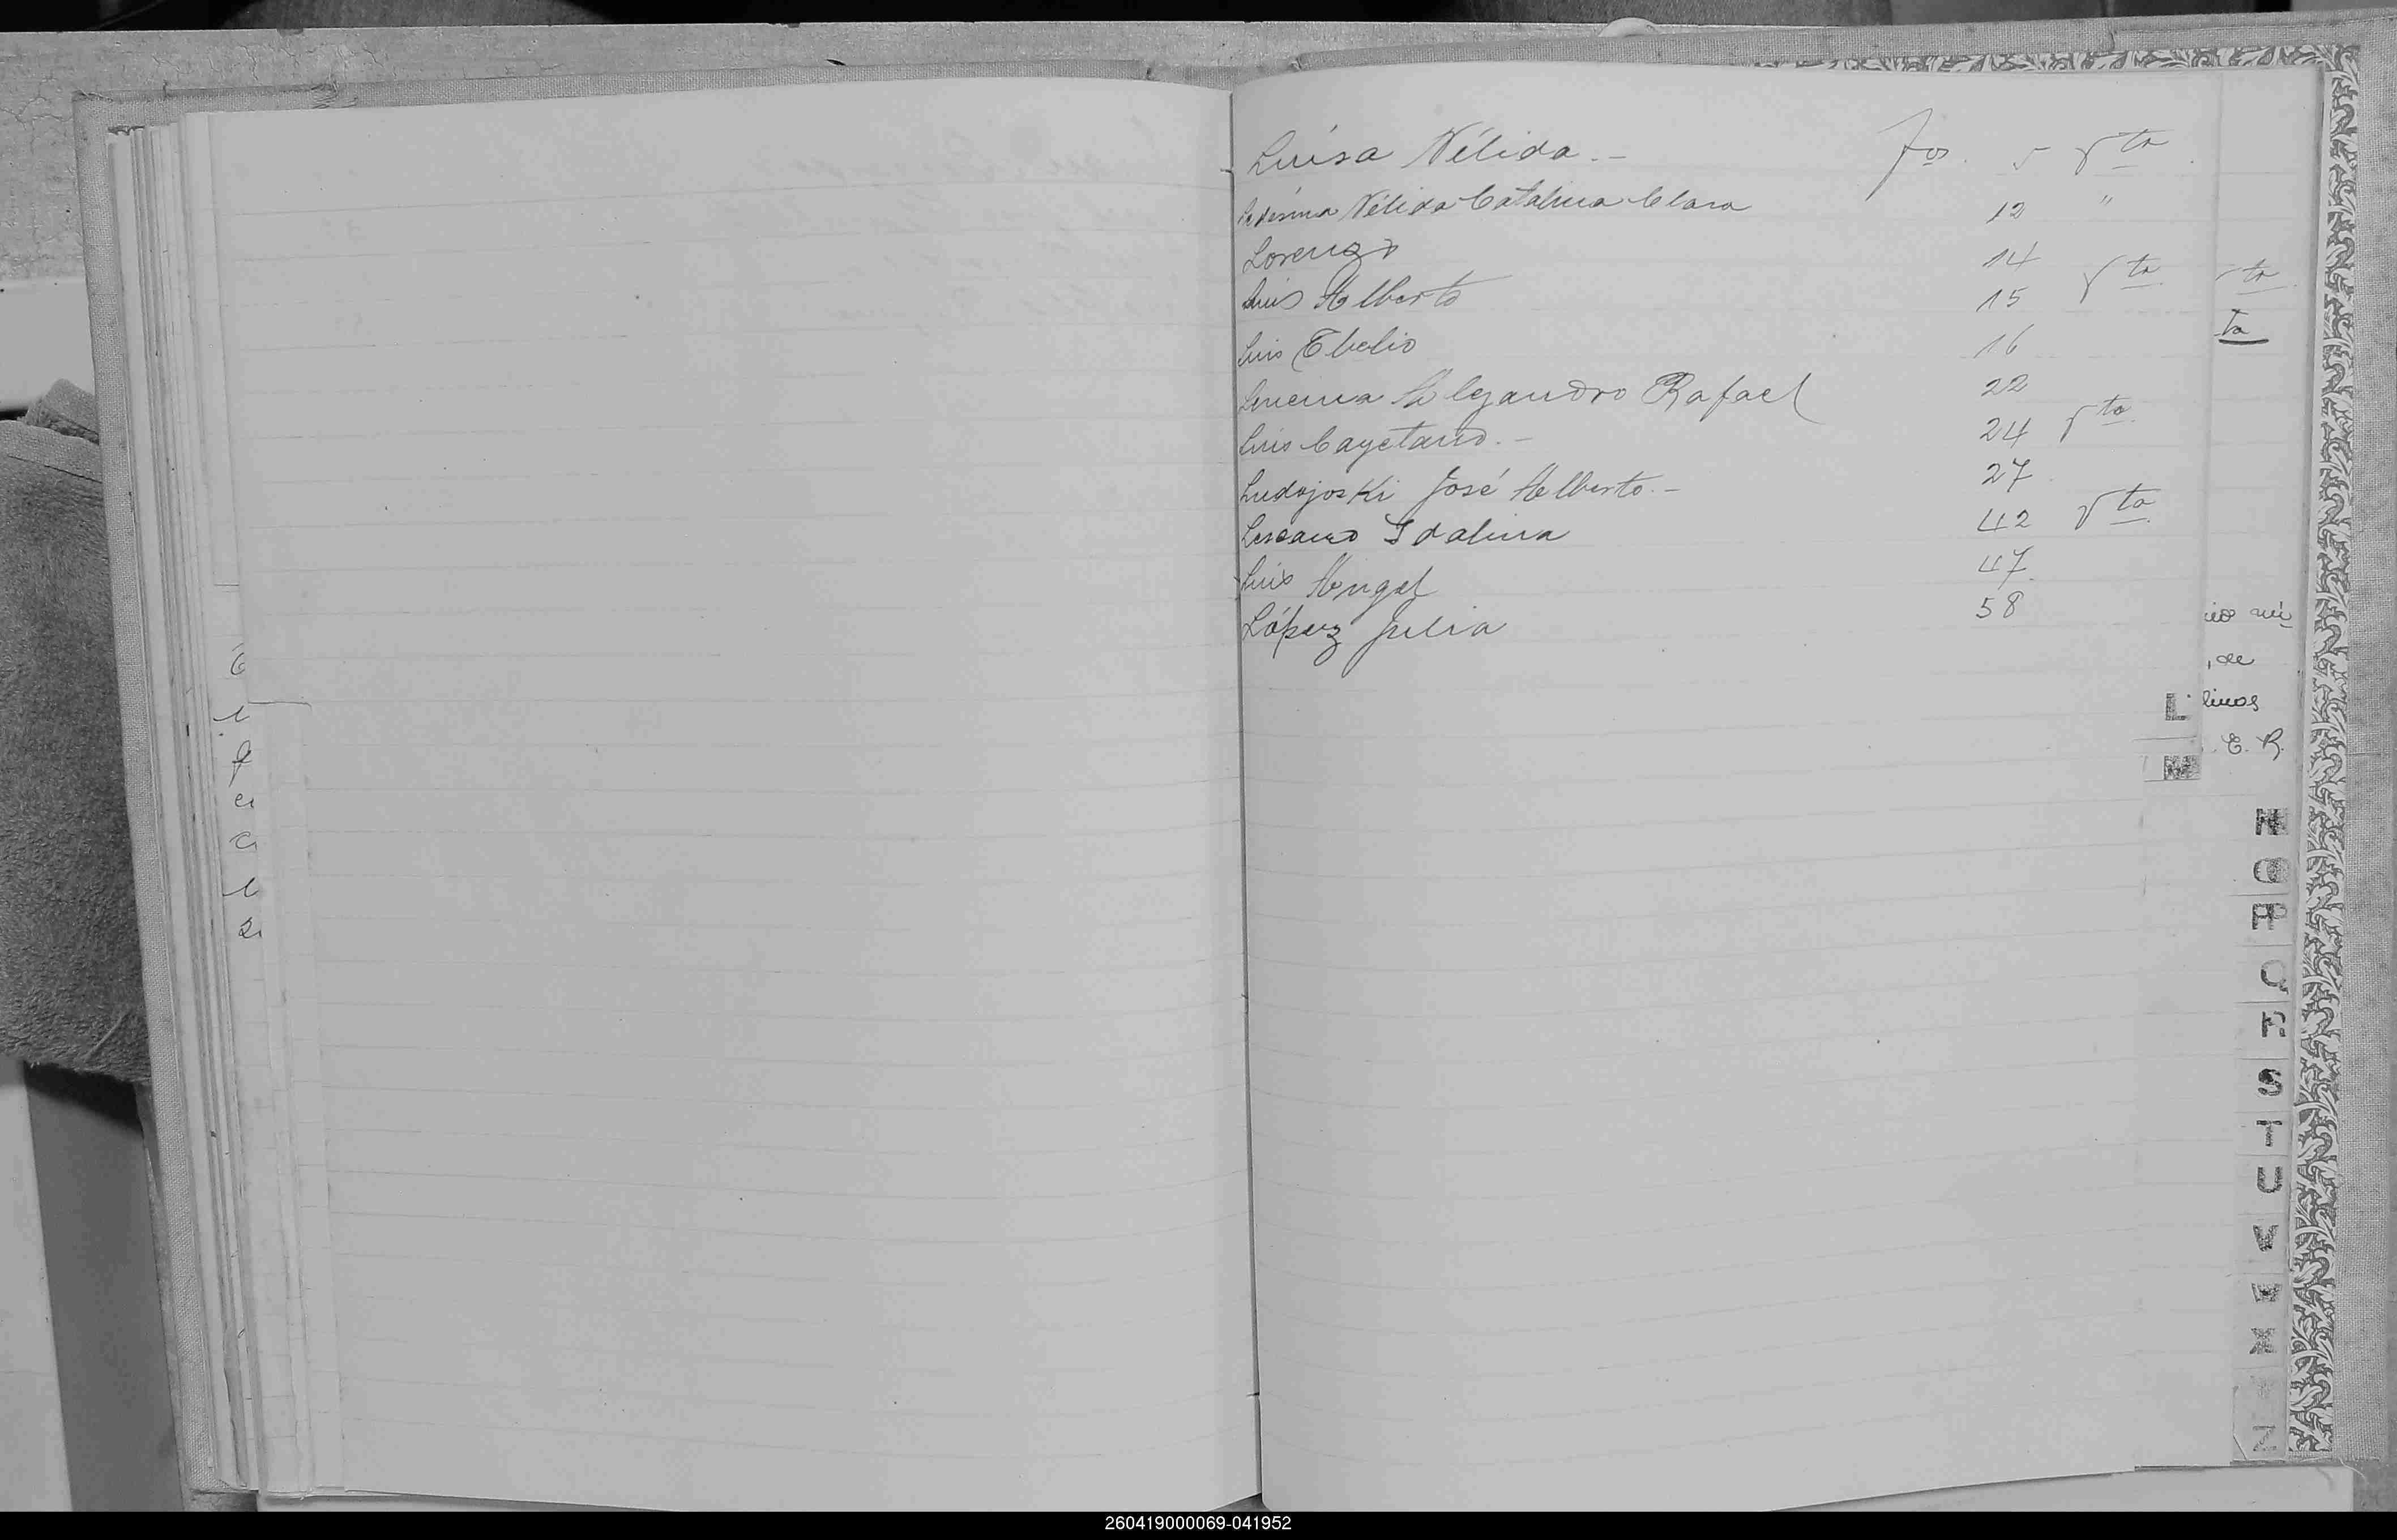 Luisa Nélida.- Fos. 5 Vta.
Ledesma Nélida Catalina Clara 12 "
Lorenzo 14
Luis Alberto 15 Vta.
Luis Evelio 16
Lencina Alejandro Rafael 22
Luis Cayetano.- 24 Vta.
Ludojoski José Alberto.- 27
Lescano Idalina 42 Vta.
Luis Angel 47
López Julia 58
ta
, de
E. R.
L
M
N
O
P
Q
R
S
T
U
V
W
X
Y
Z
260419000069-041952